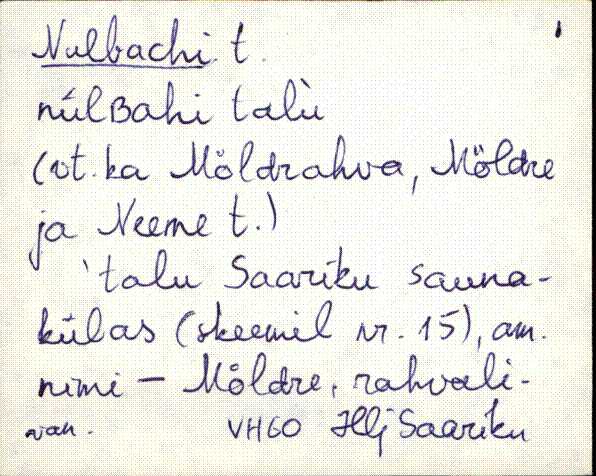 Nulbachi t.
nùlBahi talù
(vt. ka Möldrahva, Möldre
ja Neeme t.)
'talu Saariku sauna-
külas (skeemil nr. 15), am.
nimi – Möldre, rahvali-
nan. VHGO Hlj Saariku